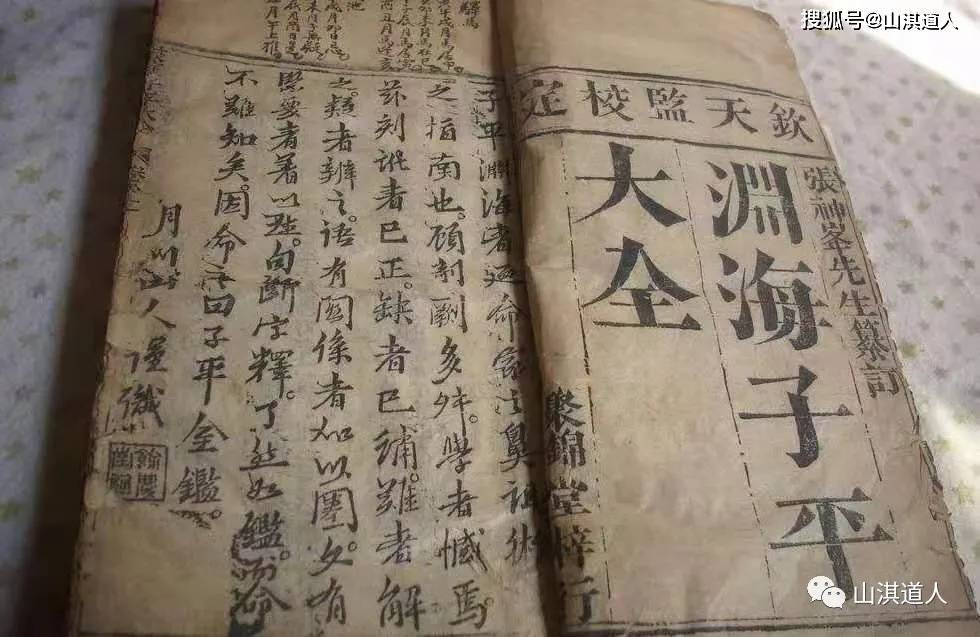 搜狐号@山淇道人
驛馬
欽天監校定
張神峯先生纂訂
淵海子平
大全
聚錦堂梓行
子平淵海者迺命家之鼻祖術
之指南也。顧剞劂多舛。學者憾焉
茲刻訛者已正。缺者已補。難者解
之。類者辨之。語有関係者加以圏。文有
緊要者著以。句断字釋。了然如鑑。而命
不難知矣。因命之曰子平全鑑。
月川山人謹識
山淇道人